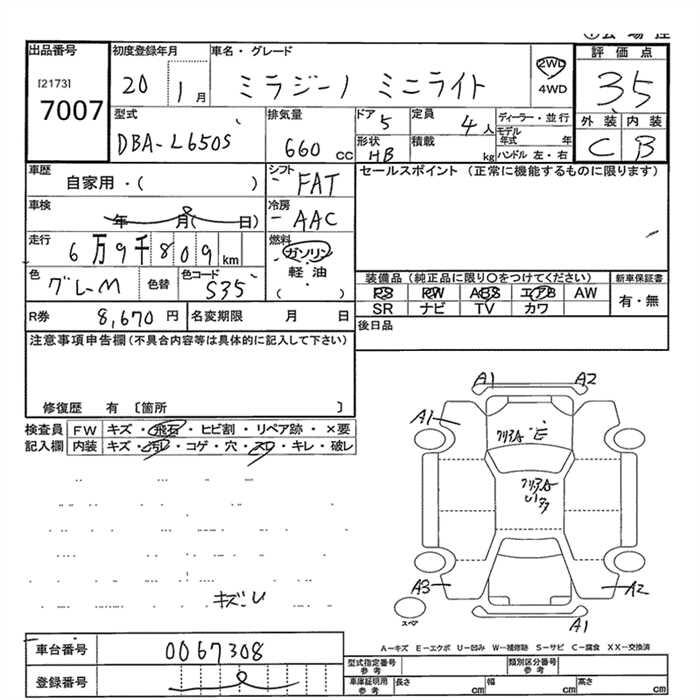 出品番号
[2173]
7007
初度登録年月
20 1月
車名・グレード
ミラジーノ ミニライト
2WD
4WD
評価点
35
外装 内装
C B
型式
DBA-L650S
排気量
660 cc
ドア 5
形状 HB
定員 4人
積載 kg
ディーラー・並行
モデル年式 年
ハンドル 左・右
車歴
自家用・( )
車検
年 月( 日)
走行
6万9千809km
色
グレーM
色替
色コード
S35
シフト
FAT
冷房
AAC
燃料
ガソリン
軽油
( )
セールスポイント (正常に機能するものに限ります)
装備品(純正品に限り○をつけてください)
PS PW ABS エアB AW
SR ナビ TV カワ
新車保証書
有・無
R券 8,670円
名変期限 月 日
後日品
注意事項申告欄(不具合内容等は具体的に記入して下さい)
修復歴 有 〔箇所 〕
検査員記入欄
FW キズ・飛石・ヒビ割・リペア跡・×要
内装 キズ・汚レ・コゲ・穴・スレ・キレ・破レ
キズ・U
A1 A2
A1
クリアA E
クリアA
U1
A3 A2
スペア
A1
A-キズ E-エクボ U-凹み W-補修跡 S-サビ C-腐食 XX-交換済
車台番号 0067308
登録番号
型式指定番号 参考
類別区分番号 参考
車庫証明用 参考 長さ cm 幅 cm 高さ cm